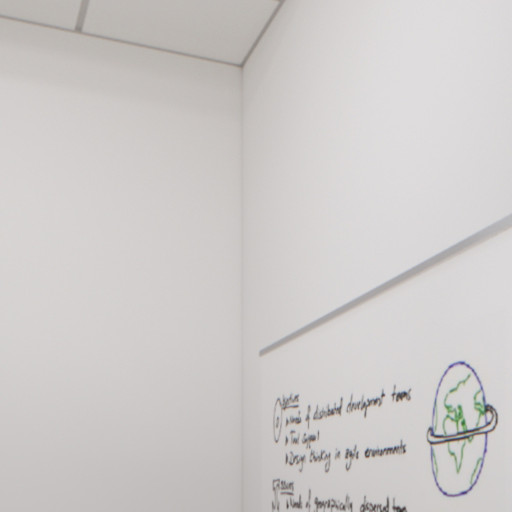 Needs of distributed development teams
Tool support
Design thinking in agile environments
Issues
Needs of geographically dispersed teams